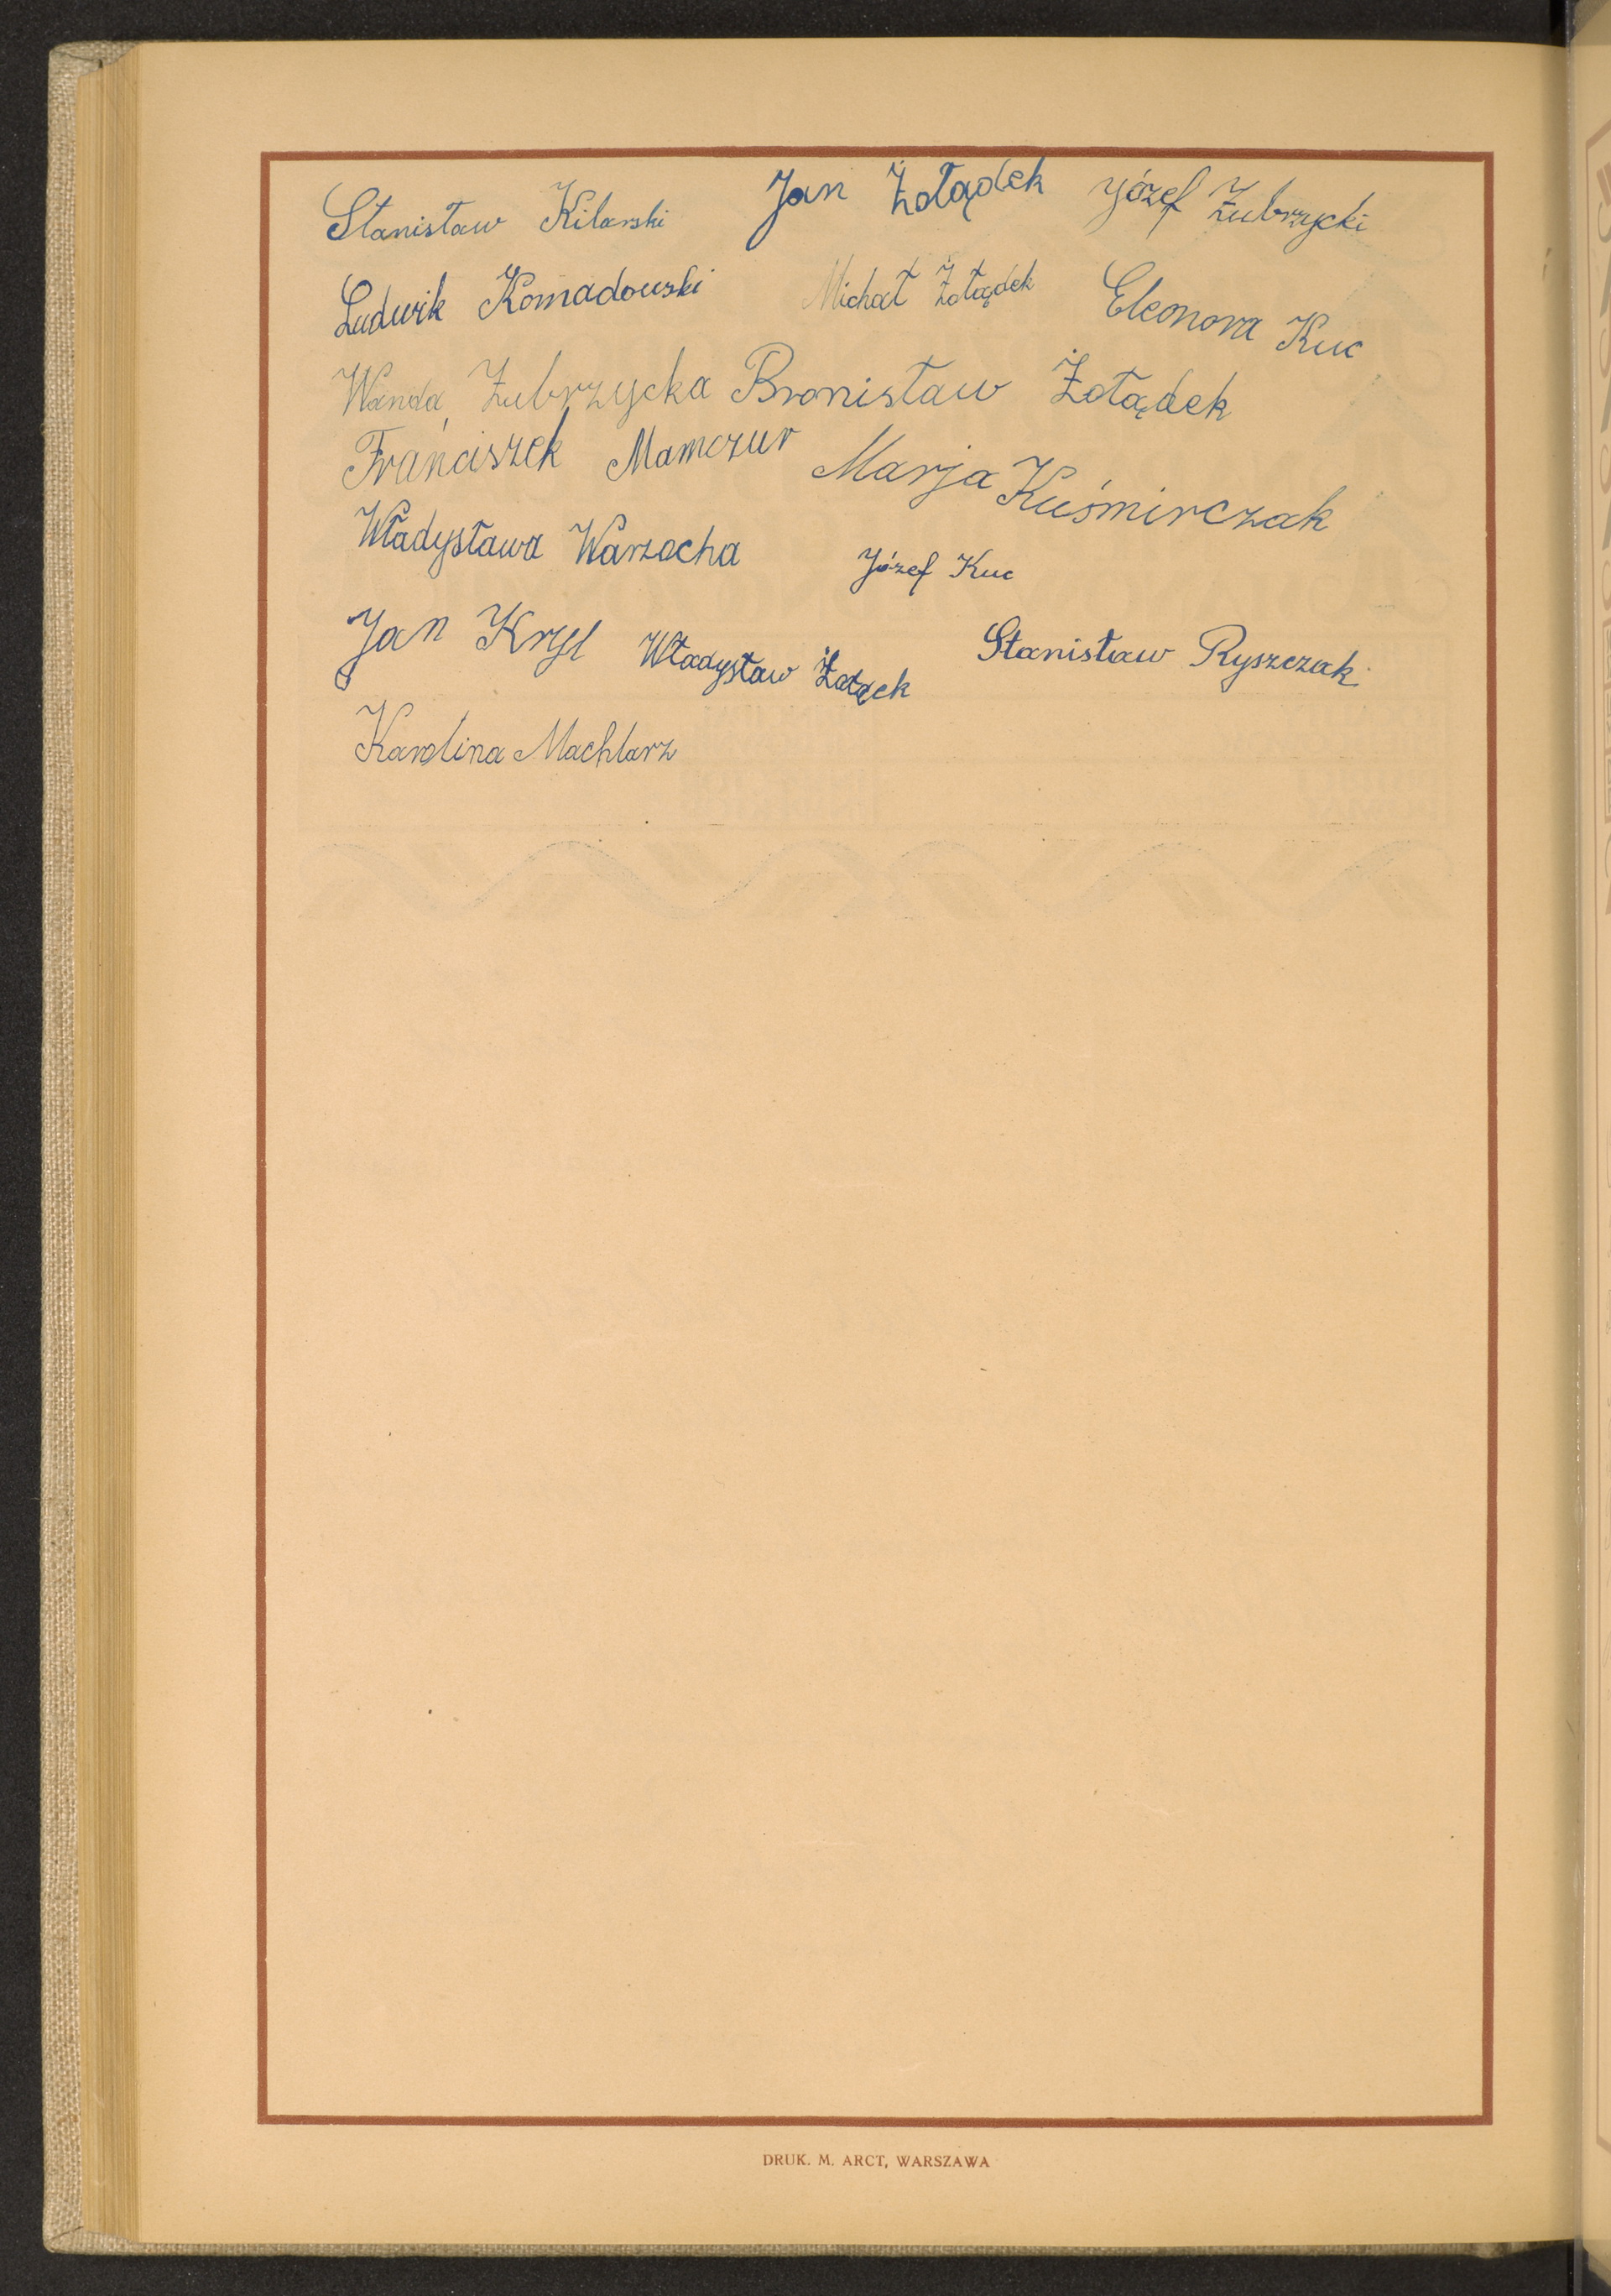 Stanisław Kilarski Jan Żołądek Józef Żubrzycki
Ludwik Komadowski Michał Żołądek Eleonora Kuc
Wanda Żubrzycka Bronisław Żołądek
Franciszek Mamczur Marja Kuśmirczak
Władysława Warzocha Józef Kuc
Jan Kryl Władysław Stanisław Ryszczak
Karolina Machlarz
DRUK. M. ARCT, WARSZAWA